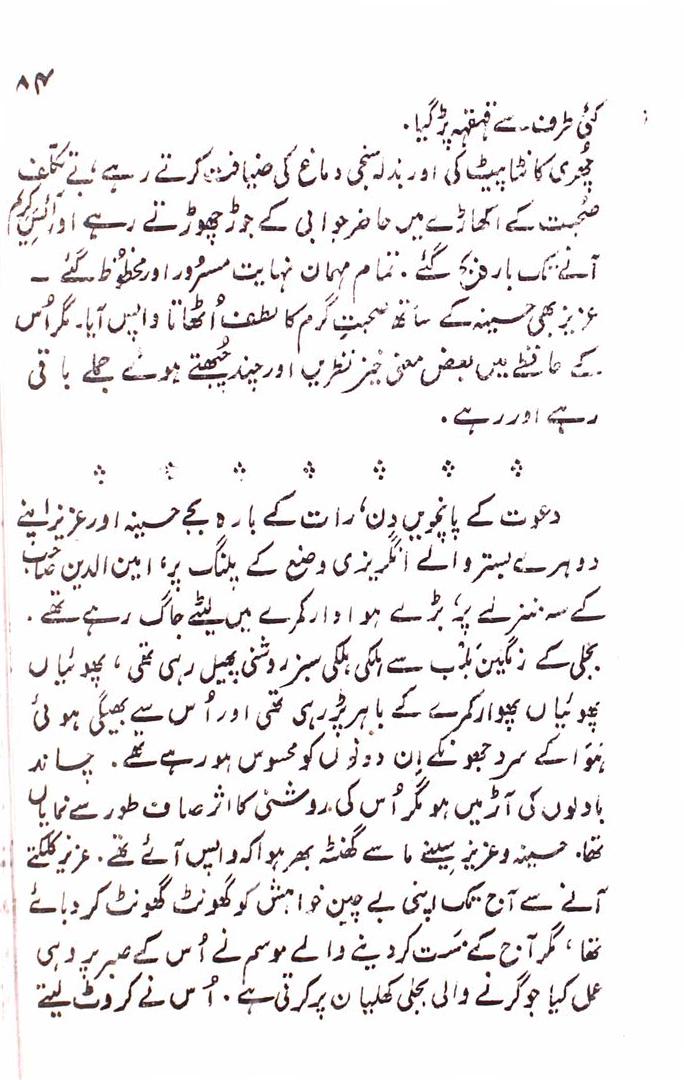 ۸۴
کئی طرف سے قہقہہ پڑ گیا۔
چھری کانٹا پیٹ کی اور بذلہ سنجی دماغ کی ضیافت کرتے رہے، بے تکلف
صُحبت کے اکھاڑے میں حاضر جوابی کے جوڑ چھوڑتے رہے اور آئس کریم
آنے تک بار فریج گئے۔ تمام مہمان نہایت مسرُور اور محظُوظ گئے۔
عزیز بھی حسینہ کے ساتھ صحبتِ گرم کا لطف اُٹھاتا واپس آیا۔ مگر اُس
کے حافظے میں بعض معنی خیز نظریں اور چند چُبھتے ہوئے جملے باقی
رہے اور رہے۔
دعوت کے پانچویں دِن، رات کے بارہ بجے حسینہ اور عزیز اپنے
دوہرے بستر والے انگریزی وضع کے پلنگ پر، امین الدین صاحب
کے سہ منزلے پر، بڑے ہوادار کمرے میں لیٹے جاگ رہے تھے۔
بجلی کے رنگین بلب سے ہلکی ہلکی سبز روشنی پھیل رہی تھی، پھوئیاں
پھوئیاں پھوار کمرے کے باہر پڑ رہی تھی اور اُس سے بھیگی ہوئی
ہَوا کے سرد جھونکے اِن دونوں کو محسوس ہو رہے تھے۔ چاند
بادلوں کی آڑ میں ہو مگر اُس کی روشنی کا اثر صاف طور سے نمایاں
تھا۔ حسینہ و عزیز سینے ما سے گھنٹہ بھر ہوا کہ واپس آئے تھے۔ عزیز کلکتے
آنے سے آج تک اپنی بے چین خواہش کو گھونٹ گھونٹ کر دبائے
تھا، مگر آج کے مَست کر دینے والے موسم نے اُس کے صبر پر وہی
عمل کیا جو گرنے والی بجلی کھلیان پر کرتی ہے۔ اُس نے کروٹ لیتے